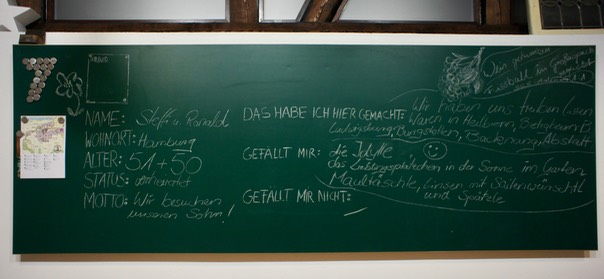 7
NAME: Steffi u. Ronald
WOHNORT: Hamburg
ALTER: 51 + 50
STATUS: verheiratet
MOTTO: Wir besuchen
unseren Sohn!
DAS HABE ICH HIER GEMACHT: Wir haben uns treiben lassen
Waren in Heilbronn, Bietigheim B.
Ludwigsburg, Burgstetten, Backnang, Abstatt
GEFÄLLT MIR: die Idylle
das Lieblingsplätzchen in der Sonne im Garten
Maultäschle, Linsen mit Saitenwürschtl
und Spätzle
GEFÄLLT MIR NICHT: —
Wein getrunken
Fussball im